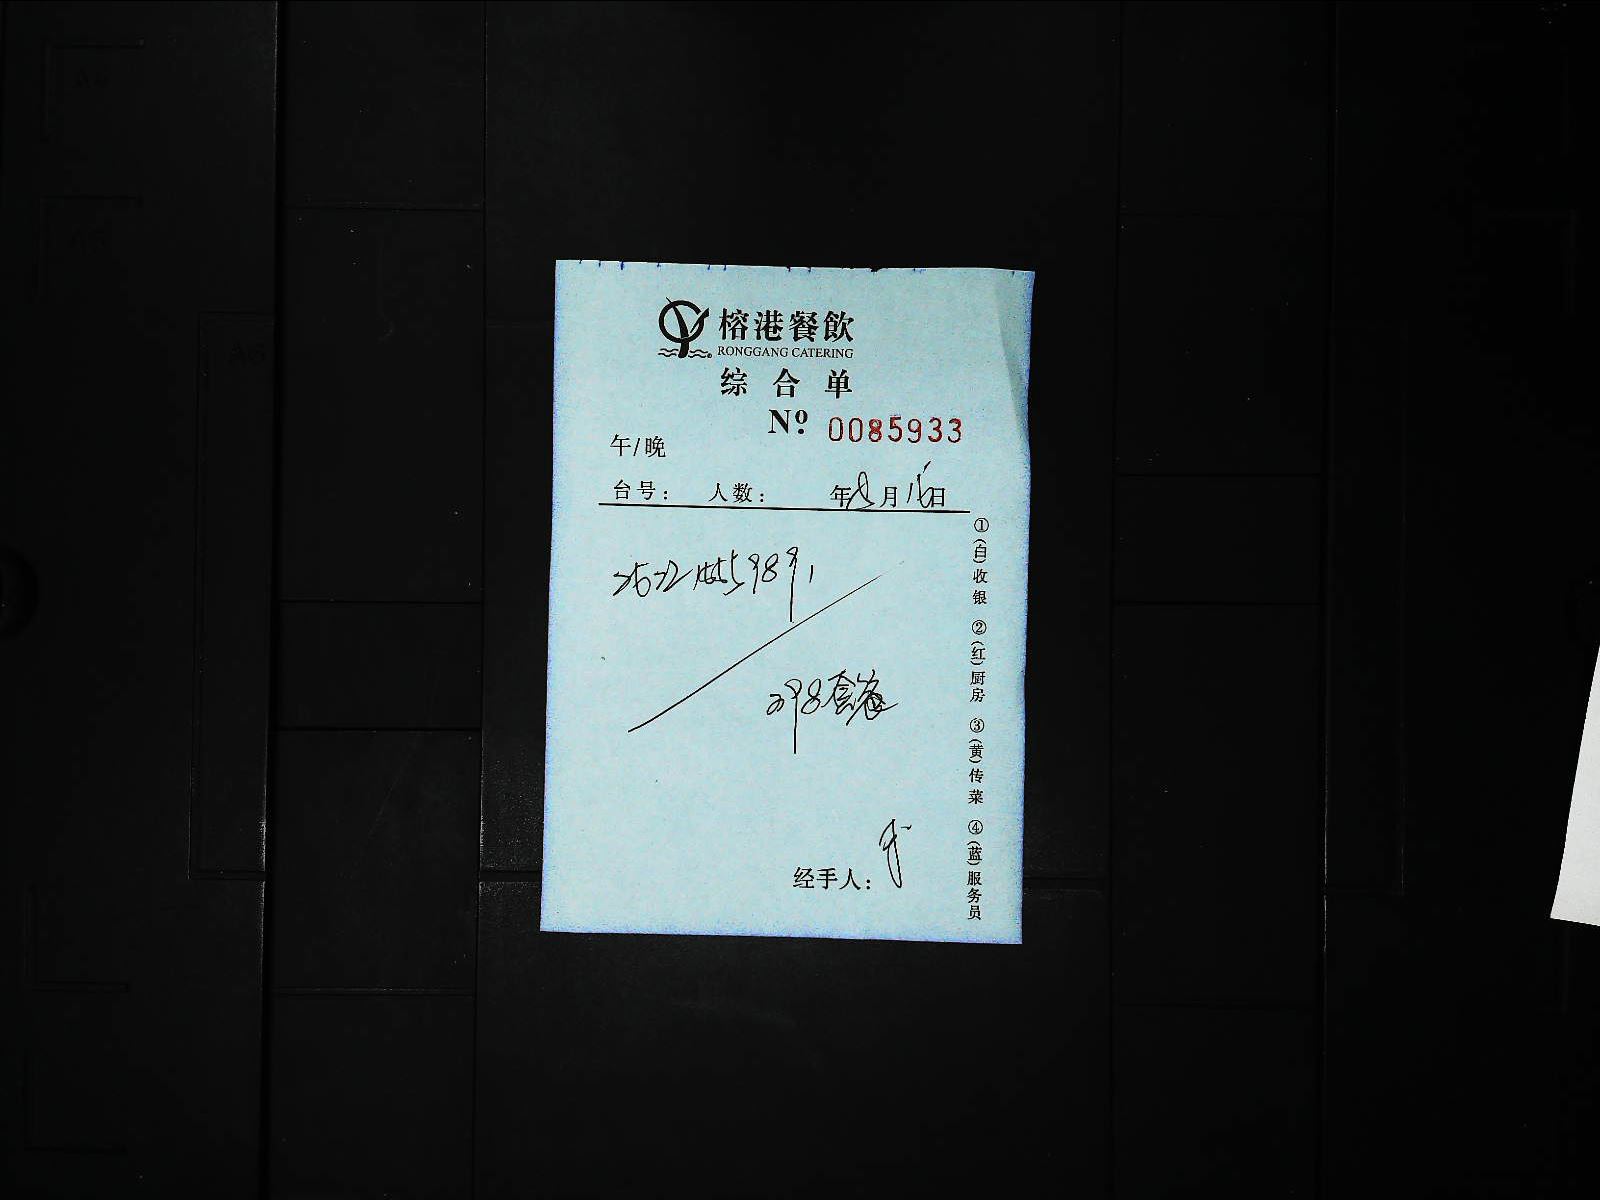 榕港餐飲
RONGGANG CATERING
综合单
Nº 0085933
午/晚
台号： 人数： 年8月16日
298套餐
经手人：
①(白)收银 ②(红)厨房 ③(黄)传菜 ④(蓝)服务员